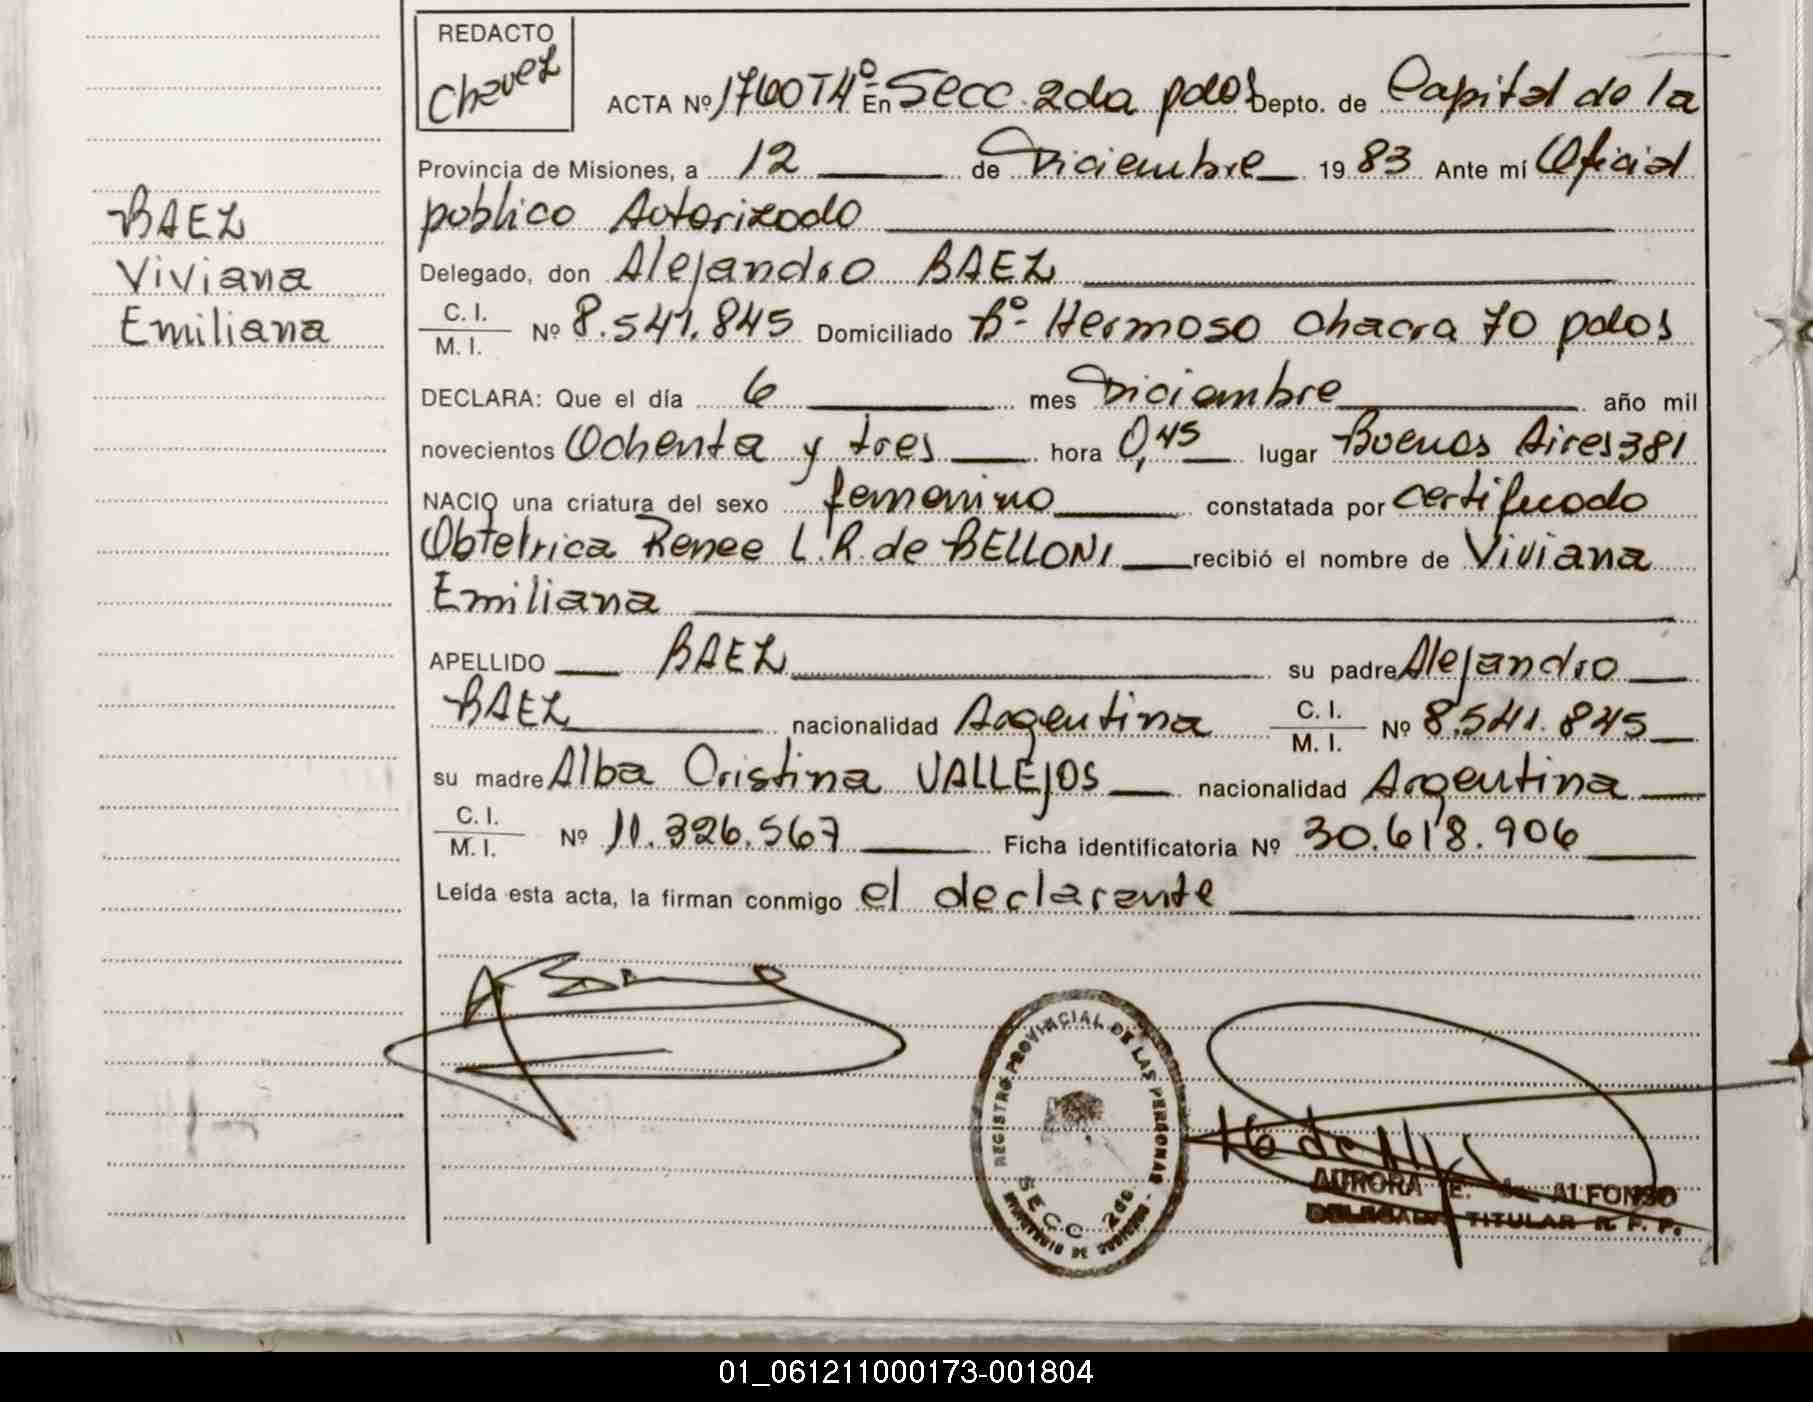 REDACTO
Chavez
ACTA Nº 1760 T4º En Secc. 2da pdas Depto. de Capital de la
Provincia de Misiones, a 12 de Diciembre 1983 Ante mí Oficial
publico Autorizado
BAEZ
Viviana
Emiliana
Delegado, don Alejandro BAEZ
C. I.
M. I. Nº 8.541.845 Domiciliado Bº Hermoso Chacra 70 pdas
DECLARA: Que el día 6 mes Diciembre año mil
novecientos Ochenta y tres hora 0,45 lugar Buenos Aires 381
NACIO una criatura del sexo femenino constatada por certificado
Obtetrica Renee L.R. de BELLONI recibió el nombre de Viviana
Emiliana
APELLIDO BAEZ su padre Alejandro
BAEZ nacionalidad Argentina C. I.
M. I. Nº 8.541.845
su madre Alba Cristina VALLEJOS nacionalidad Argentina
C. I.
M. I. Nº 11.326.567 Ficha identificatoria Nº 30.618.906
Leída esta acta, la firman conmigo el declarante
REGISTRO PROVINCIAL DE LAS PERSONAS
SECC 2da
MINISTERIO DE GOBIERNO
AURORA E. de ALFONSO
DELEGADA TITULAR R. P. P.
01_061211000173-001804